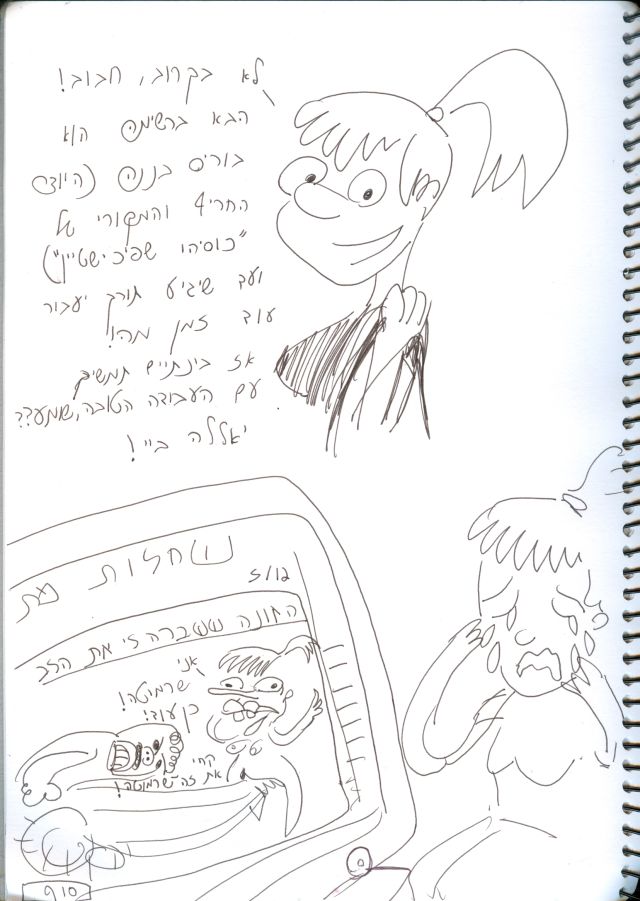 לא בקרוב, חבוב!
הבא ברשימה הוא
בוריס בננה (היודה
החריף והמקורי של
"כוסיהו שפיכישטיין")
ועד שיגיע תורך יעבור
עוד זמן מה!
אז בינתיים תמשיך
עם העבודה הטובה, שומע??
יאללה ביי!
שחלות מת
5/12
התמונה ששברה לי את הלב
אני
שרמוטה!
כן עוד!
קחי
את זה שרמוטה!
סוף